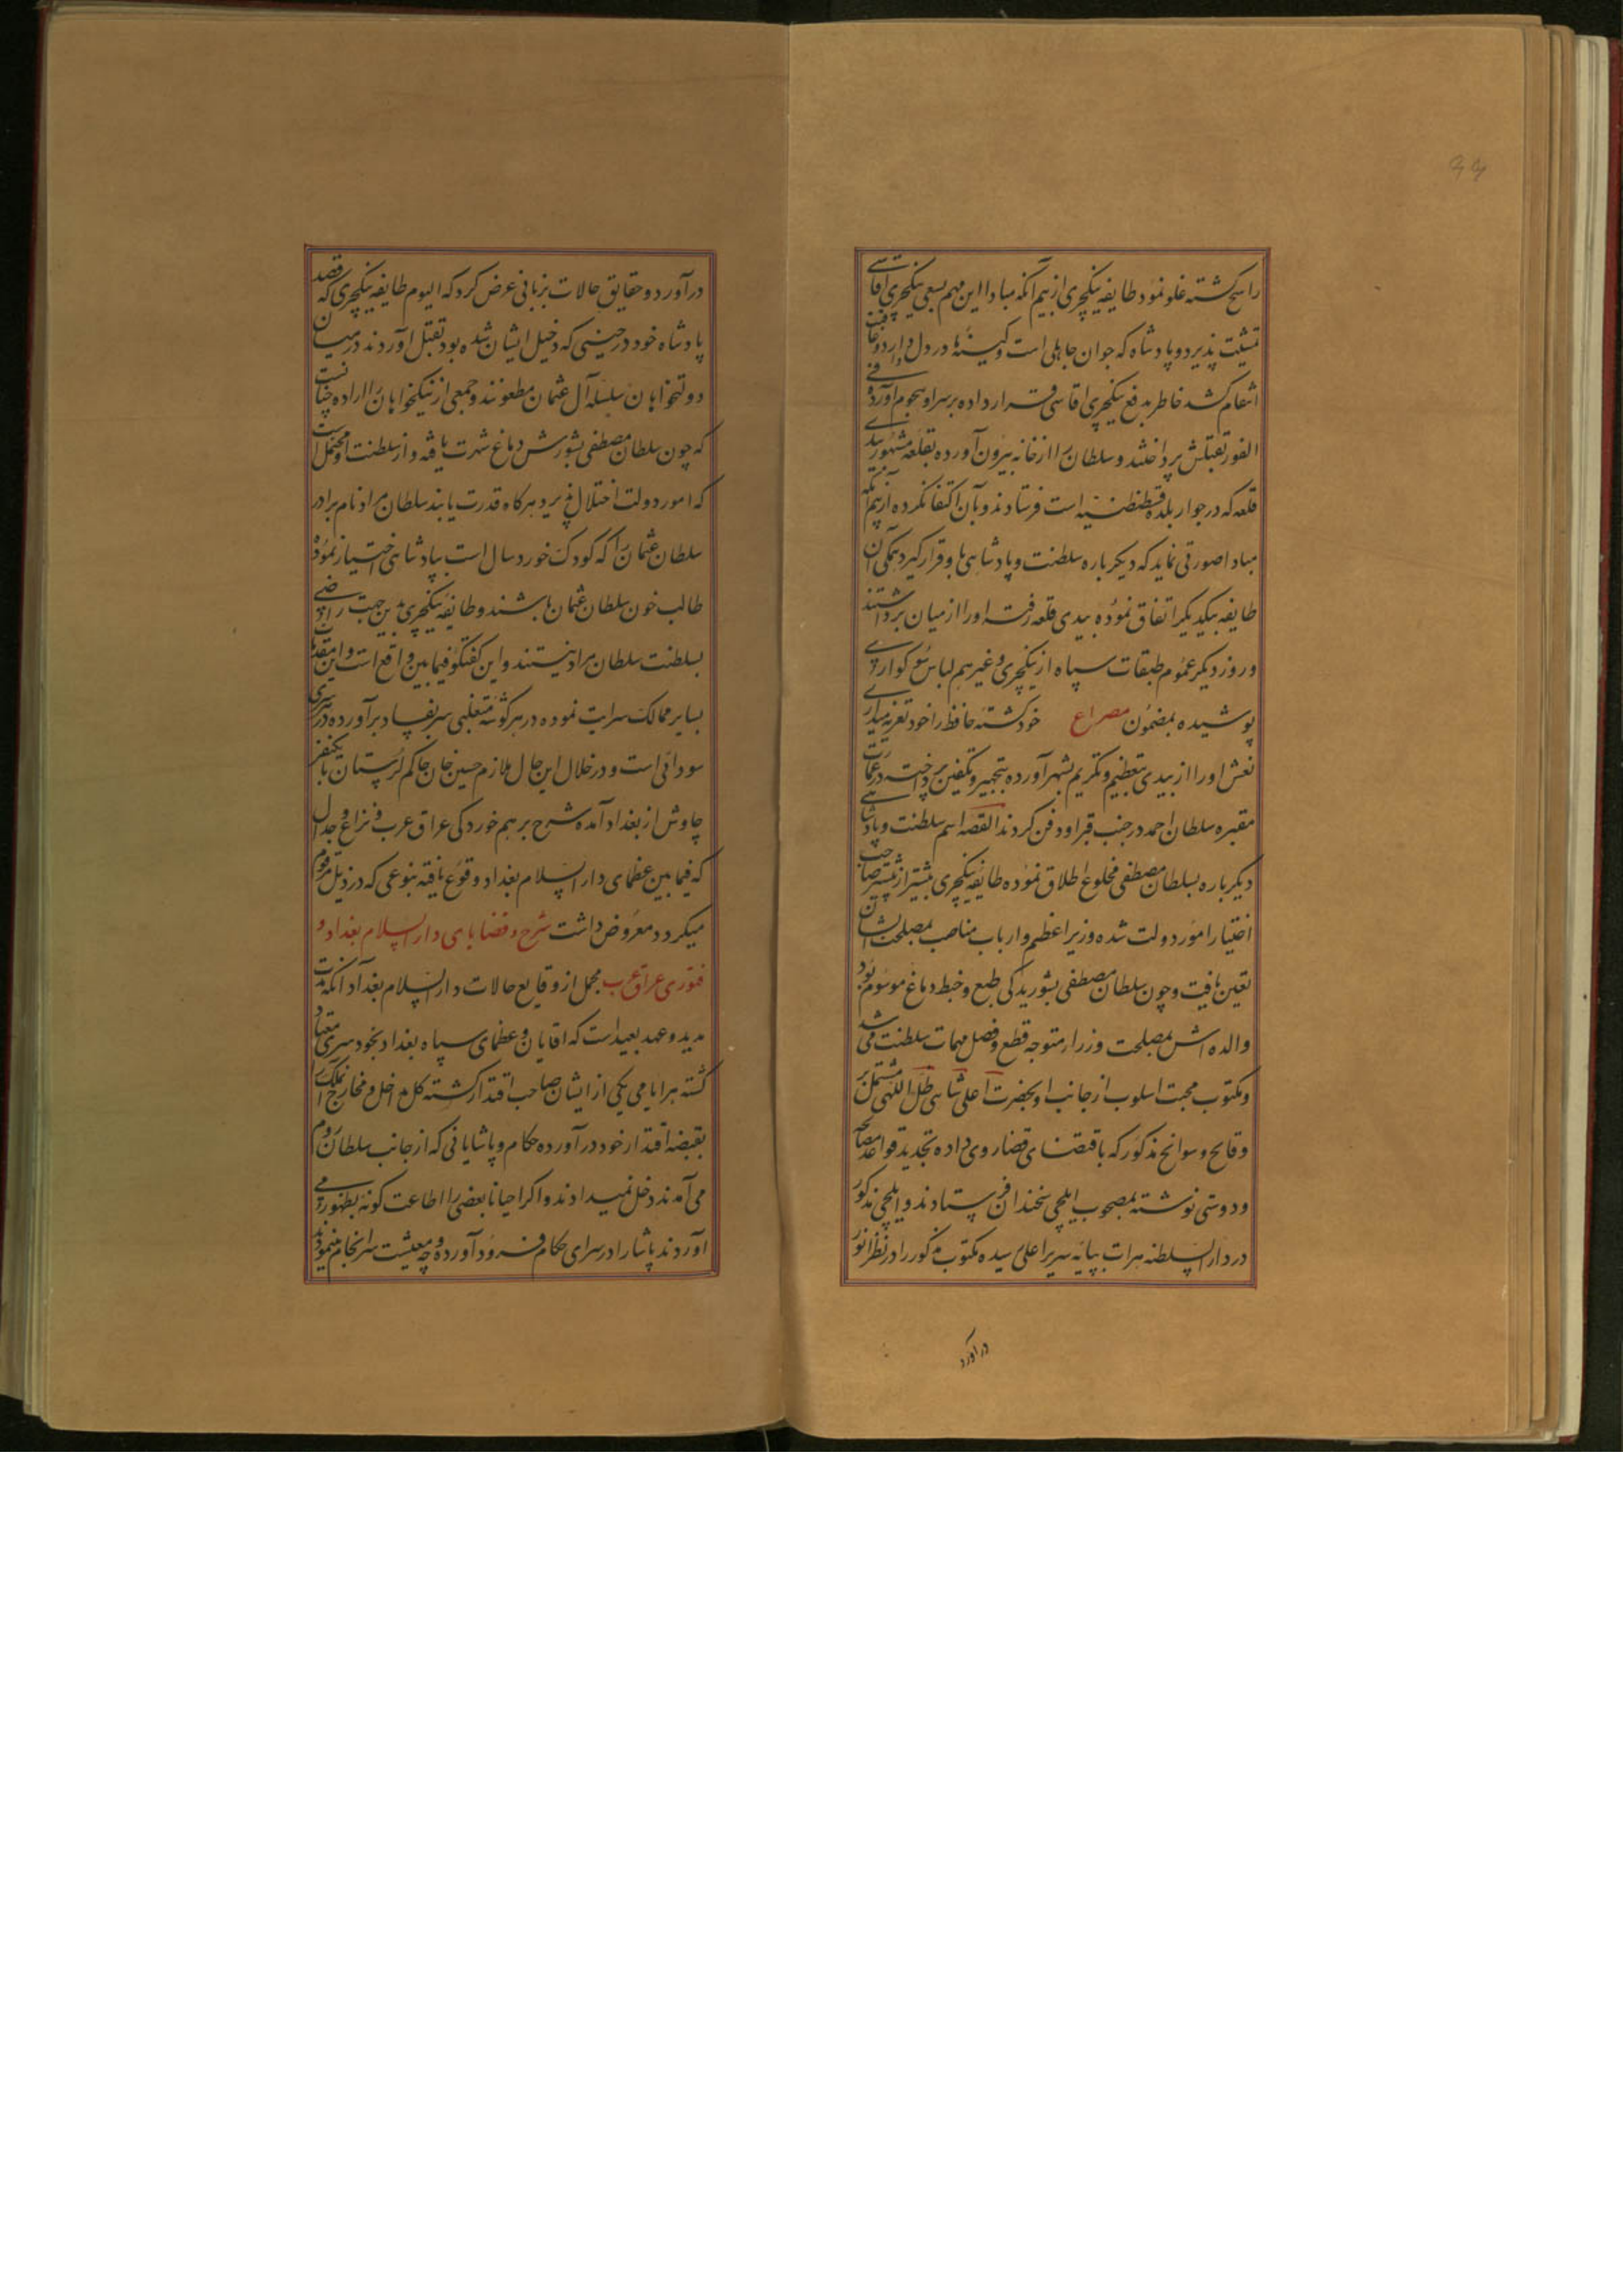 راسخ گشته غلو نمود طایفه ینکچری از بیم آنکه مبادا این مهم بسعی ینکچری آقاسی
تمشیت پذیرد و پادشاه که جوان جاهلی است و کینه‌ها در دل دارد و عاقبت
انتقام کشد خاطر بدفع ینکچری اقاسی قرار داده بر سر او هجوم آورده فی
الفور بقتلش پرداختند و سلطان را از خانه بیرون آورده بقلعه مشهور بیدی
قلعه که در جوار بلده قسطنطنیه است فرستادند و بآن اکتفا نکرده از بیم آنکه
مبادا صورتی نماید که دیگر باره سلطنت و پادشاهی باو قرار گیرد همکی آن
طایفه بیکدیگر اتفاق نموده بیدی قلعه رفته او را از میان برداشتند
و روز دیگر عموم طبقات سپاه از ینکچری و غیرهم لباس سوکواری
پوشیده بمضمون مصراع خود کشته حافظ را خود تعزیه میداری
نعش او را از بیدی بتعظیم و تکریم بشهر آورده بتجهیز و تکفین پرداخته در عمارت
مقبره سلطان احمد در جنب قبر او دفن کردند القصه اسم سلطنت و پادشاهی
دیگر باره بسلطان مصطفی مخلوع اطلاق نموده طایفه ینکچری بیشتر از پیشتر صاحب
اختیار امور دولت شده وزیر اعظم و ارباب مناصب بمصلحت ایشان
تعین یافت و چون سلطان مصطفی بشوریدکی طبع و خبط دماغ موسوم بود
والده اش بمصلحت وزرا متوجه قطع و فصل مهمات سلطنت می شد
و مکتوب محبت اسلوب از جانب او بحضرت اعلی شاهی ظل اللهی مشتمل بر
وقایع و سوانح مذکور که باقتضای قضا روی داده و تجدید قواعد مصالحه
و دوستی نوشته بمصحوب ایلچی سخندان فرستادند و ایلچی مذکور
در دار السلطنه هرات بپایه سریر اعلی رسیده مکتوب مذکور را در نظر انور
در آورد
در آورد و حقایق حالات بزبانی عرض کرد که الیوم طایفه ینکچری که قصد
پادشاه خود در حینی که دخیل ایشان شده بود بقتل آوردند در میان
دولتخواهان سلسله آل عثمان مطعونند و جمعی از نیکخواهان را اراده چنانست
که چون سلطان مصطفی بشورش دماغ شهرت یافته و از سلطنت او محتمل است
که امور دولت اختلال پذیرد هرگاه قدرت یابند سلطان مراد نام برادر
سلطان عثمان را که کودک خورد سال است بپادشاهی اختیار نموده
طالب خون سلطان عثمان باشند و طایفه ینکچری بدین جهت راضی
بسلطنت سلطان مراد نیستند و این گفتگو فیمابین واقع است و این مقدمات
بسایر ممالک سرایت نموده در هر گوشه متغلبی سر بفساد برآورده در هر سری
سودائی است و در خلال این حال ملازم حسین خان حاکم لرستان با یکنفر
چاوش از بغداد آمده شرح بر هم خوردکی عراق عرب و نزاع و جدال
که فیمابین عظمای دار السلام بغداد وقوع یافته بنوعی که در ذیل مرقوم
میگردد معروض داشت شرح و قضایای دار السلام بغداد و
فتوری عراق عرب مجمل از وقایع حالات دار السلام بغداد آنکه مدت
مدید و عهد بعید است که اقایان و عظمای سپاه بغداد بخودسری معتاد
گشته هر ایامی یکی از ایشان صاحب اقتدار گشته کل مداخل و مخارج آن ملک را
بقبضه اقتدار خود در آورده حکام و پاشایانی که از جانب سلطان روم
می آمدند دخل نمیدادند و اگر احیانا بعضی را اطاعت گونه بظهور می
آوردند پاشا را در سرای حکام فرود آورده وجه معیشت سرانجام مینمودند